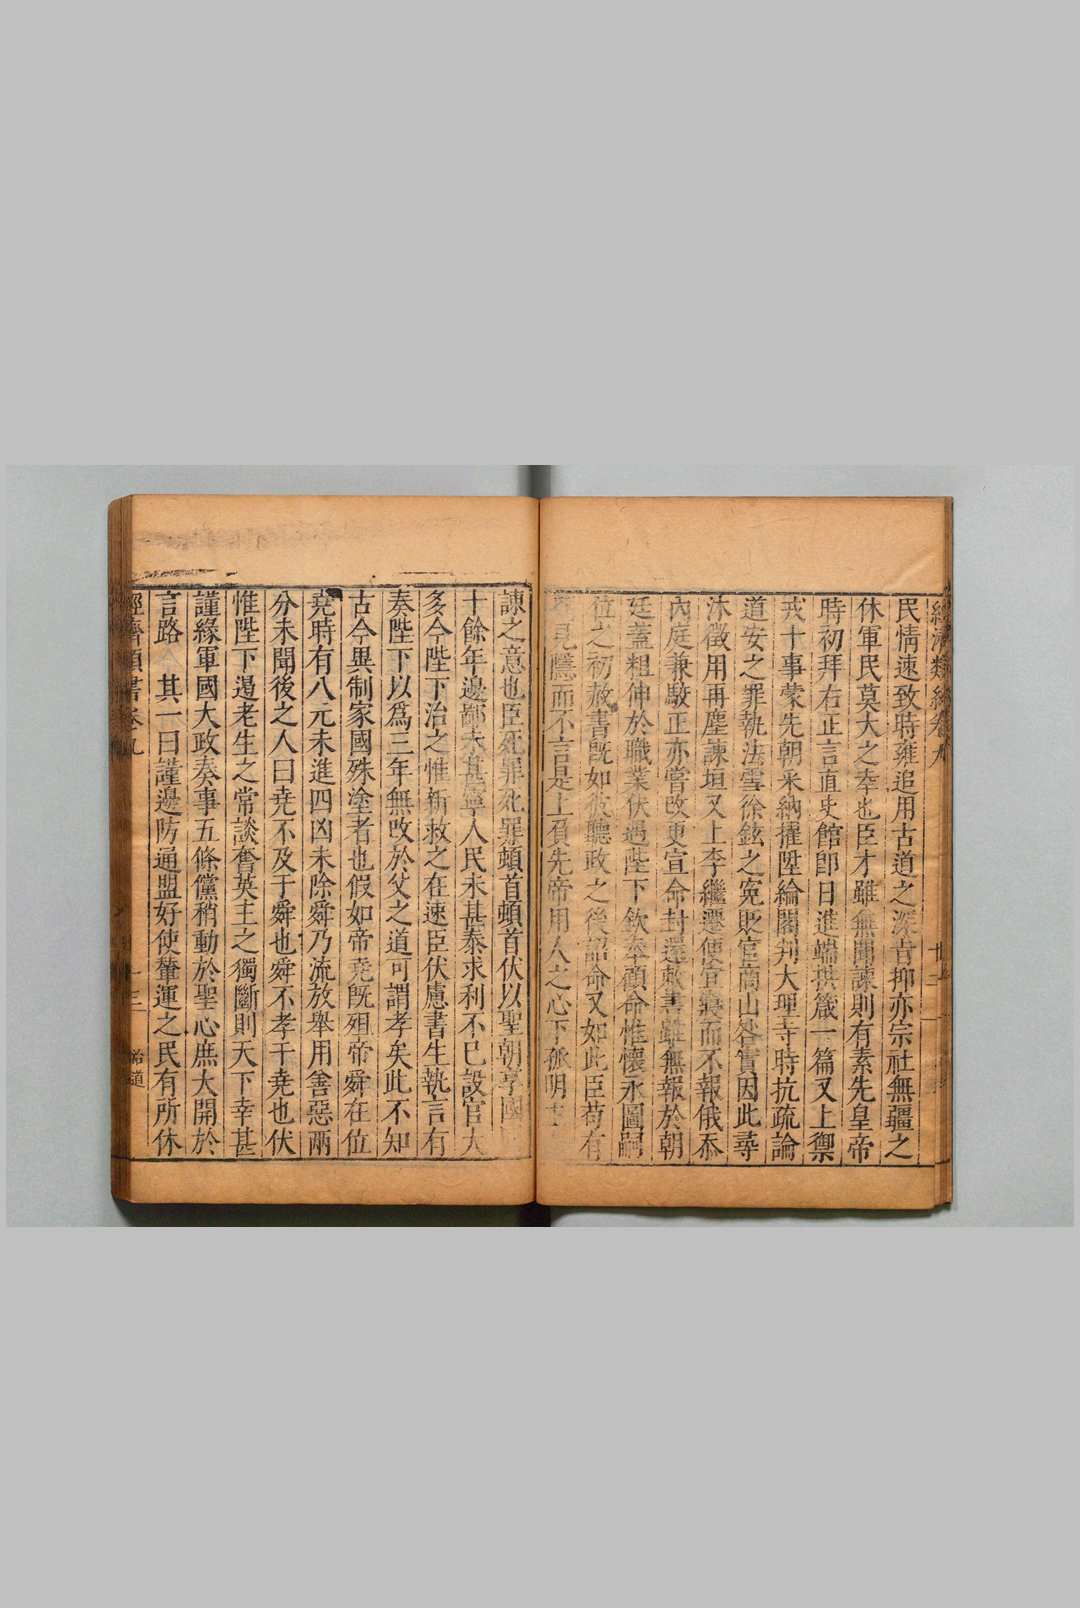 經濟類編卷九 廿二
民情速致時雍追用古道之深旨抑亦宗社無疆之
休軍民莫大之幸也臣才雖無聞諫則有素先皇帝
時初拜右正言直史館即日進端拱箴一篇又上禦
戎十事蒙先朝采納擢陞綸閣判大理寺時抗疏論
道安之罪執法雪徐鉉之寃貶官商山咎實因此尋
沐徵用再塵諫垣又上李繼遷便宜寢而不報俄忝
內庭兼駮正亦嘗改更宣命封還敕書雖無報於朝
廷蓋粗伸於職業伏遇陛下欽奉顧命惟懷永圖嗣
位之初赦書既如彼聽政之後詔命又如此臣苟有
見隱而不言是上負先帝用人之心下孤明
諫之意也臣死罪死罪頓首頓首伏以聖朝享國
十餘年邊鄙未甚寧人民未甚泰求利不已設官太
多今陛下治之惟新救之在速臣伏慮書生執言有
奏陛下以爲三年無改於父之道可謂孝矣此不知
古今異制家國殊塗者也假如帝堯既殂帝舜在位
堯時有八元未進四凶未除舜乃流放舉用善惡兩
分未聞後之人曰堯不及于舜也舜不孝于堯也伏
惟陛下遏老生之常談奮英主之獨斷則天下幸甚
謹緣軍國大政奏事五條儻稍動於聖心庶大開於
言路 其一曰謹邊防通盟好使輦運之民有所休
卷九